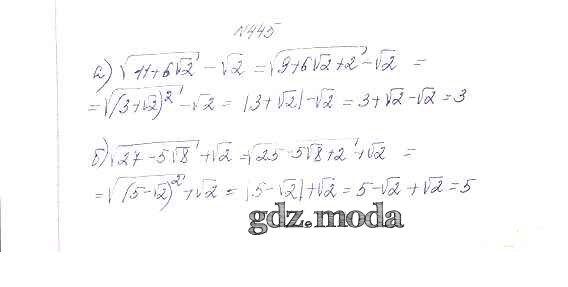 №445
а) √(11+6√2) - √2 = √(9+6√2+2) - √2 =
= √((3+√2)²) - √2 = |3+√2| - √2 = 3+√2-√2 = 3
б) √(27-5√8) + √2 = √(25-5√8+2) + √2 =
= √((5-√2)²) + √2 = |5-√2| + √2 = 5-√2+√2 = 5
gdz.moda